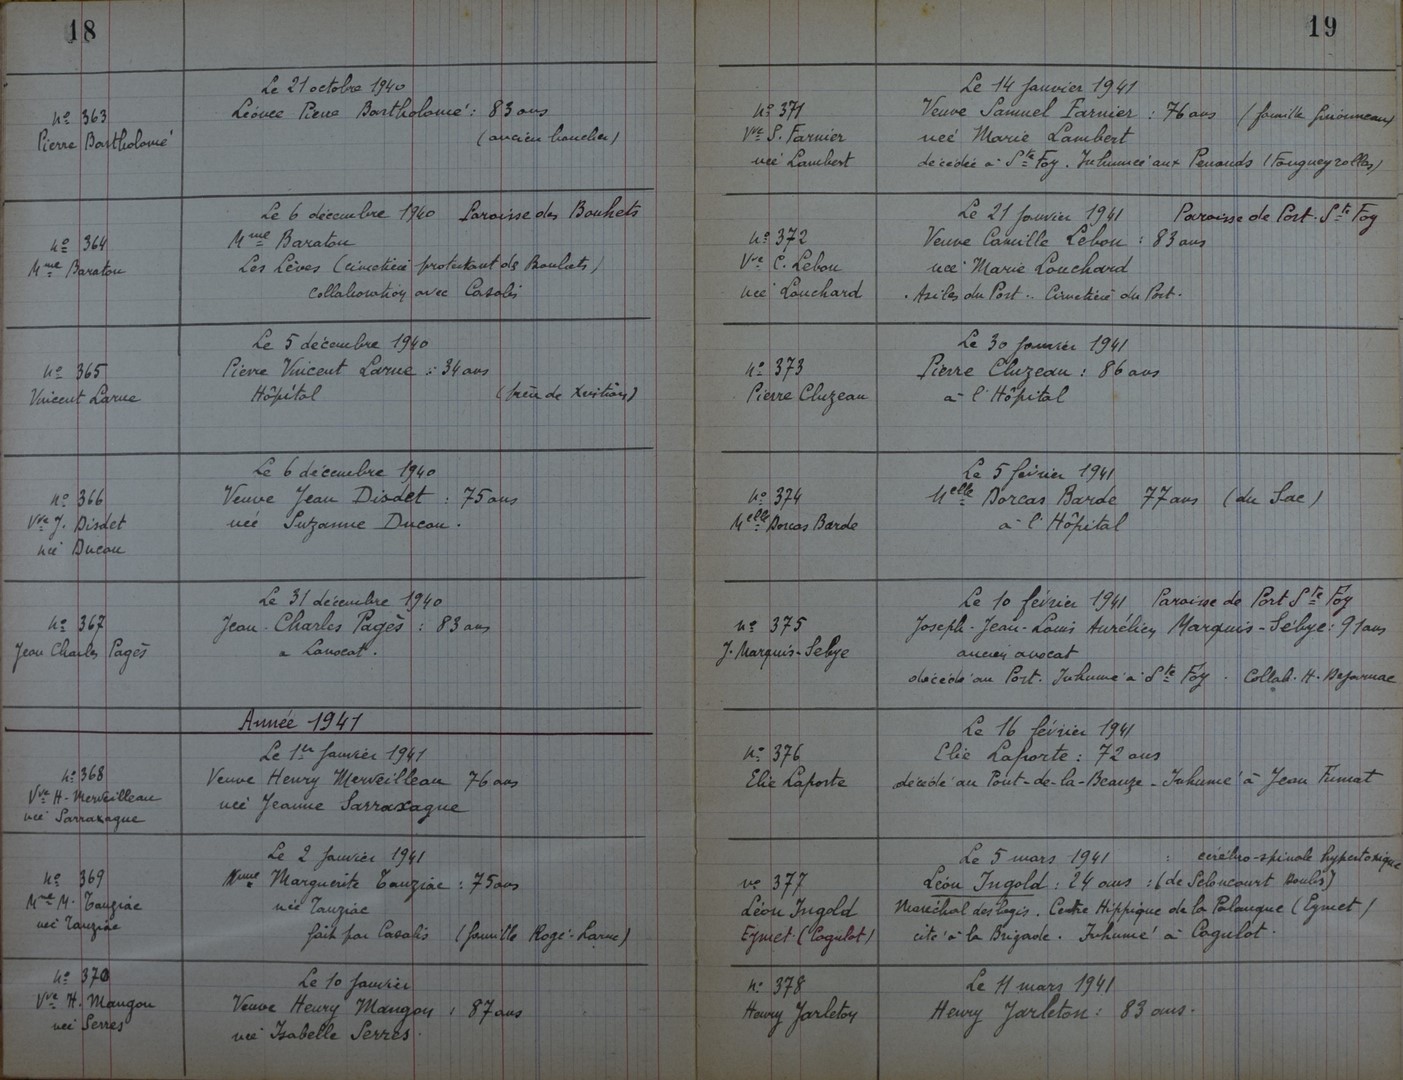 18
Le 21 octobre 1940
nº 363
Pierre Bartholomé
Léonce Pierre Bartholomé : 83 ans
(ancien boucher)
Le 6 décembre 1940 Paroisse des Bouhets
nº 364
Mme Baraton
Mme Baraton
Les Lèves (cimetière protestant des Bouhets)
collaboration avec Casalis
Le 5 décembre 1940
nº 365
Vincent Larue
Pierre Vincent Larue : 34 ans
Hôpital
Le 6 décembre 1940
nº 366
Vve J. Disdet
née Ducou
Veuve Jean Disdet : 75 ans
née Suzanne Ducou.
Le 31 décembre 1940
nº 367
Jean Charles Pagès
Jean-Charles Pagès : 83 ans
a Lavocat.
Année 1941
Le 1er Janvier 1941
nº 368
Vve H. Merveilleau
née Sarraxague
Veuve Henry Merveilleau 76 ans
née Jeanne Sarraxague
Le 2 Janvier 1941
nº 369
Mme M. Tauziac
née Tauziac
Mme Marguerite Tauziac : 75 ans
née Tauziac
fait par Casalis (famille Rogé-Larue)
Le 10 Janvier
nº 370
Vve H. Mangou
née Serres
Veuve Henry Mangou : 87 ans
née Isabelle Serres.
19
Le 14 Janvier 1941
nº 371
Vve S. Farnier
née Lambert
Veuve Samuel Farnier : 76 ans (famille
née Marie Lambert
décédée à Ste Foy. Inhumée aux Renauds (Fougueyrolles)
Le 21 Janvier 1941 Paroisse de Port-Ste Foy
nº 372
Vve C. Lebou
née Louchard
Veuve Camille Lebou : 83 ans
née Marie Louchard
. Asiles du Port.. Cimetière du Port.
Le 30 Janvier 1941
nº 373
Pierre Cluzeau
Pierre Cluzeau : 86 ans
à l'Hôpital
Le 5 février 1941
nº 374
Melle Dorcas Barde
Melle Dorcas Barde 77 ans (du Sac)
à l'Hôpital
Le 10 février 1941 Paroisse de Port Ste Foy
nº 375
J. Marquis-Sébye
Joseph-Jean-Louis Aurélien Marquis-Sébye : 91 ans
ancien avocat
décédé au Port. Inhumé à Ste Foy. Collab. H.
Le 16 février 1941
nº 376
Elie Laporte
Elie Laporte : 72 ans
décédé au Pont-de-la-Beauze - Inhumé à Jean Fumat
Le 5 mars 1941 : cérébro-spinale hypertoxique
nº 377
Léon Ingold
Eymet (Cogulot)
Léon Ingold : 24 ans : (de Seloncourt Doubs)
Maréchal des logis. Centre Hippique de la Palanque (Eymet)
cité à la Brigade. Inhumé à Cogulot.
Le 11 mars 1941
nº 378
Henry Jarleton
Henry Jarleton : 83 ans.